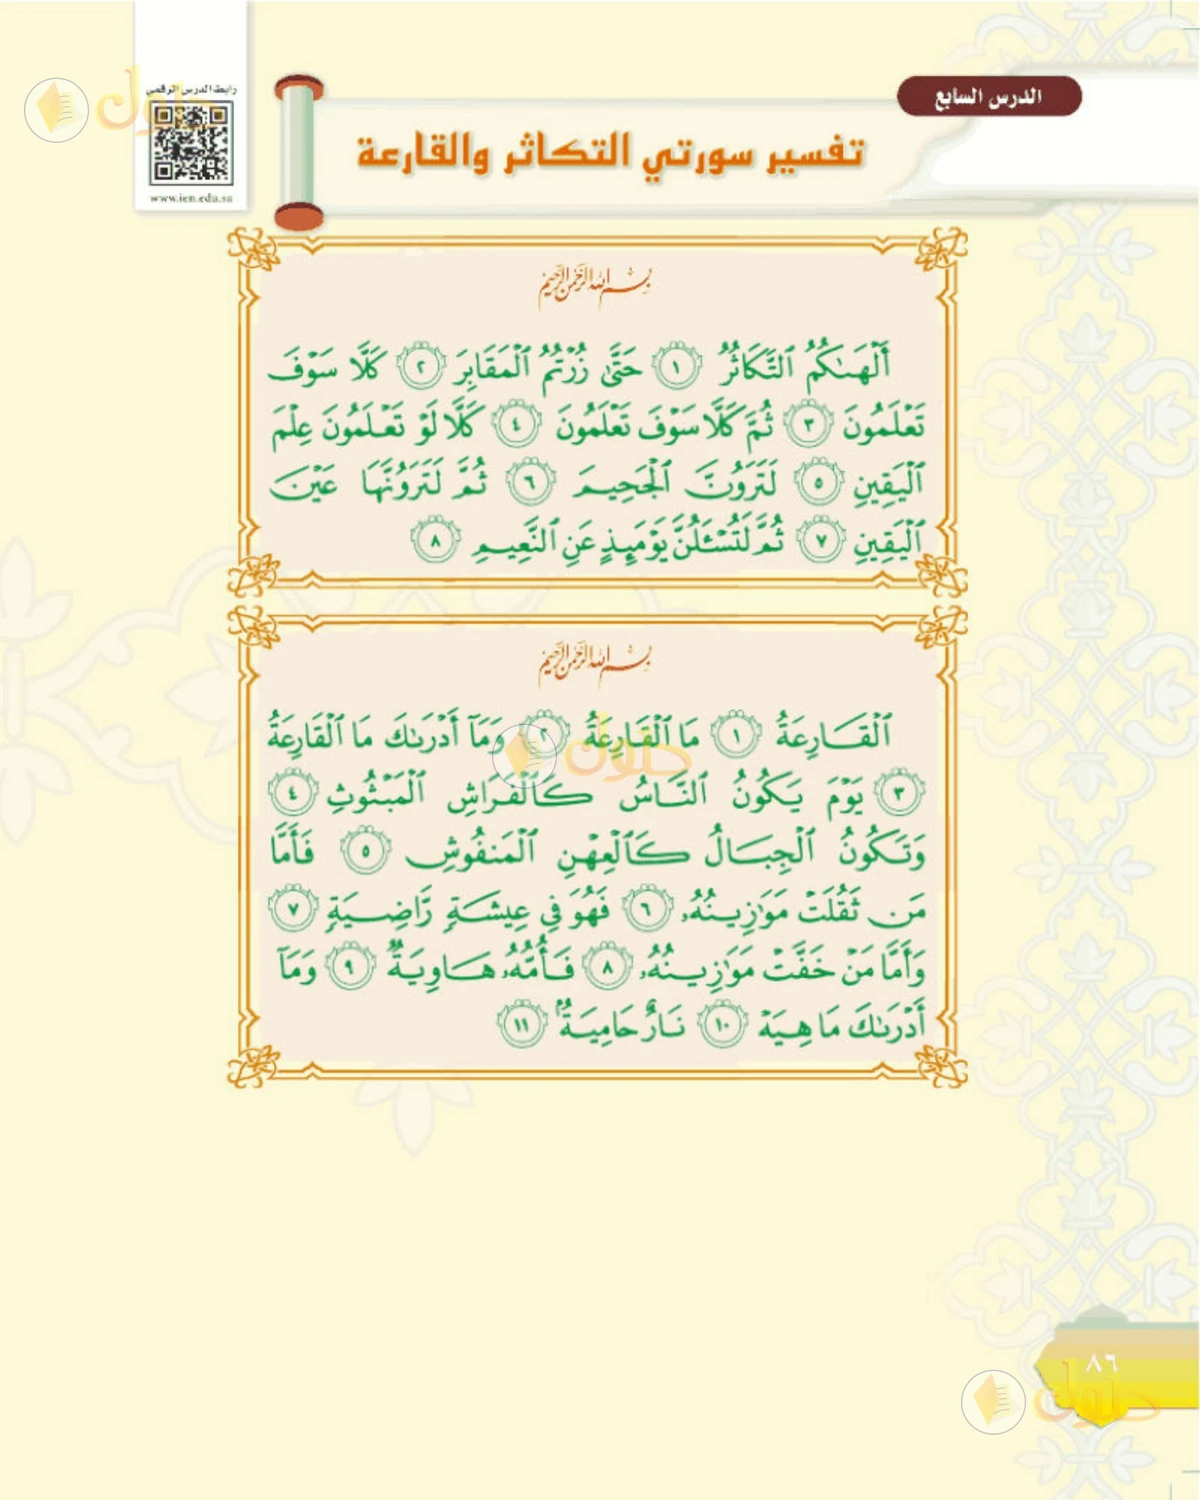 الدرس السابع
رابط الدرس الرقمي
www.ien.edu.sa
تفسير سورتي التكاثر والقارعة
بِسْمِ اللَّهِ الرَّحْمَٰنِ الرَّحِيمِ
أَلْهَىٰكُمُ ٱلتَّكَاثُرُ ١ حَتَّىٰ زُرْتُمُ ٱلْمَقَابِرَ ٢ كَلَّا سَوْفَ
تَعْلَمُونَ ٣ ثُمَّ كَلَّا سَوْفَ تَعْلَمُونَ ٤ كَلَّا لَوْ تَعْلَمُونَ عِلْمَ
ٱلْيَقِينِ ٥ لَتَرَوُنَّ ٱلْجَحِيمَ ٦ ثُمَّ لَتَرَوُنَّهَا عَيْنَ
ٱلْيَقِينِ ٧ ثُمَّ لَتُسْـَٔلُنَّ يَوْمَئِذٍ عَنِ ٱلنَّعِيمِ ٨
بِسْمِ اللَّهِ الرَّحْمَٰنِ الرَّحِيمِ
ٱلْقَارِعَةُ ١ مَا ٱلْقَارِعَةُ ٢ وَمَآ أَدْرَىٰكَ مَا ٱلْقَارِعَةُ
٣ يَوْمَ يَكُونُ ٱلنَّاسُ كَٱلْفَرَاشِ ٱلْمَبْثُوثِ ٤
وَتَكُونُ ٱلْجِبَالُ كَٱلْعِهْنِ ٱلْمَنفُوشِ ٥ فَأَمَّا
مَن ثَقُلَتْ مَوَٰزِينُهُۥ ٦ فَهُوَ فِى عِيشَةٍ رَّاضِيَةٍ ٧
وَأَمَّا مَنْ خَفَّتْ مَوَٰزِينُهُۥ ٨ فَأُمُّهُۥ هَاوِيَةٌ ٩ وَمَآ
أَدْرَىٰكَ مَا هِيَهْ ١٠ نَارٌ حَامِيَةٌۢ ١١
٨٦
حلول
حلول
حلول